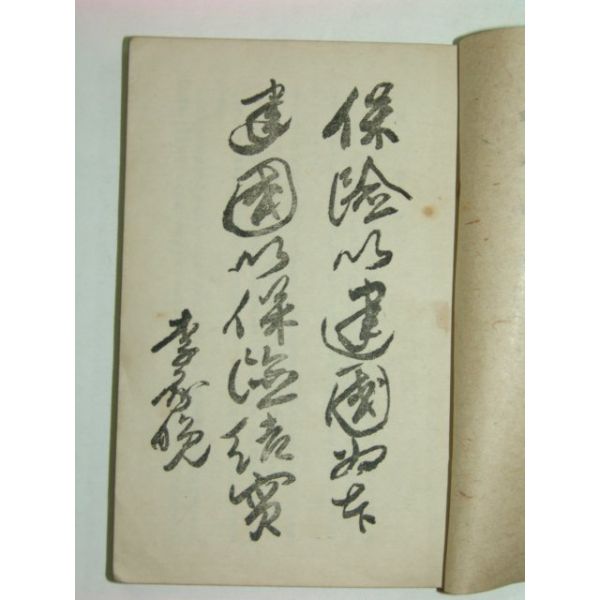 保險以建國
建國以保險結實
李承晚